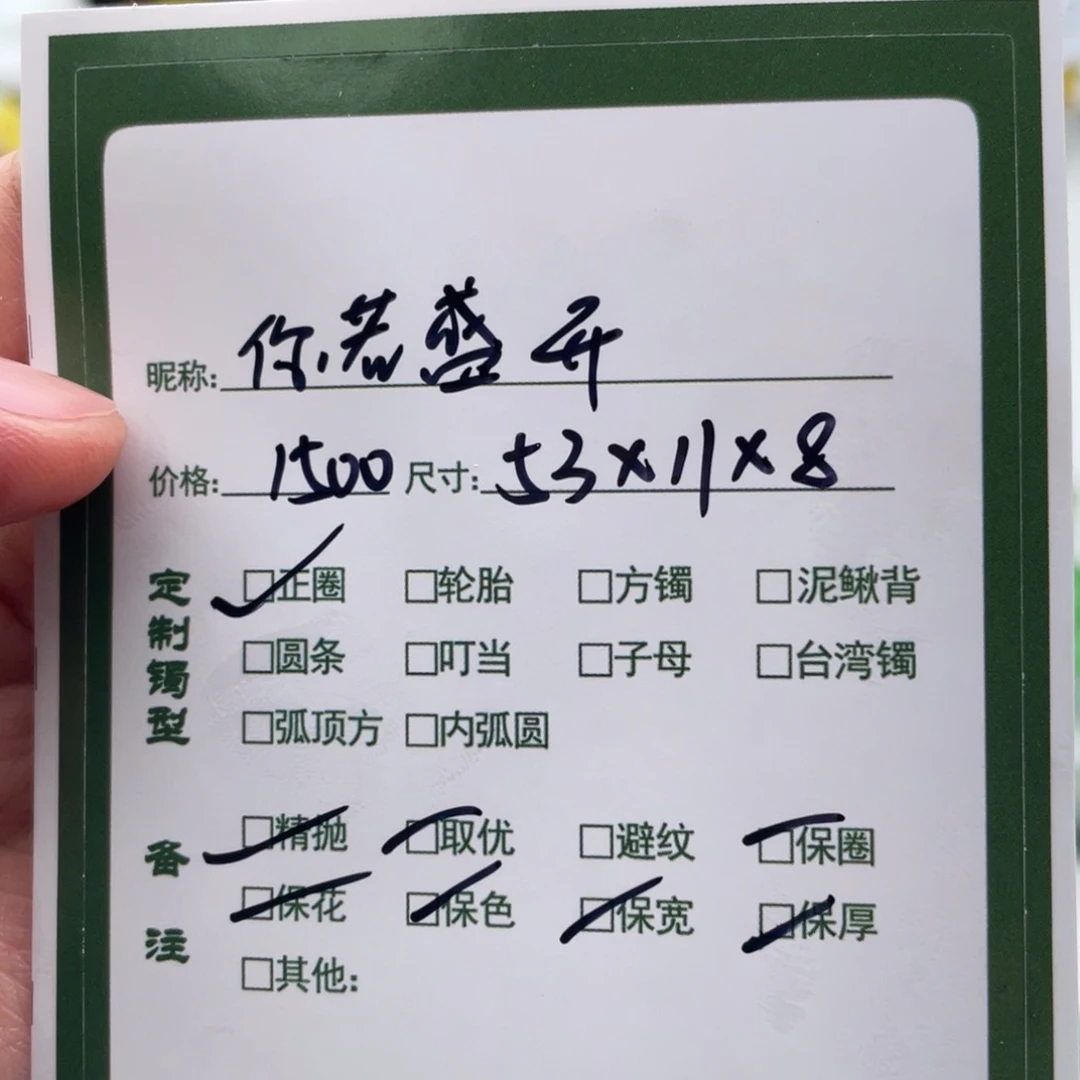 昵称: 你若盛开
价格: 1500 尺寸: 53×11×8
定制镯型
□正圈 □轮胎 □方镯 □泥鳅背
□圆条 □叮当 □子母 □台湾镯
□弧顶方 □内弧圆
备注
□精抛 □取优 □避纹 □保圈
□保花 □保色 □保宽 □保厚
□其他: